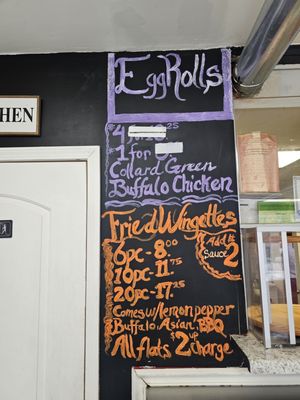 HEN
EggRolls
1 for
Collard Green
Buffalo Chicken
Fried Wingettes
6pc - 8.00
10pc - 11.75
20pc - 17.25
Add
Sauce 2
Comes w/lemon pepper
Buffalo, Asian, BBQ
All flats $2 up charge